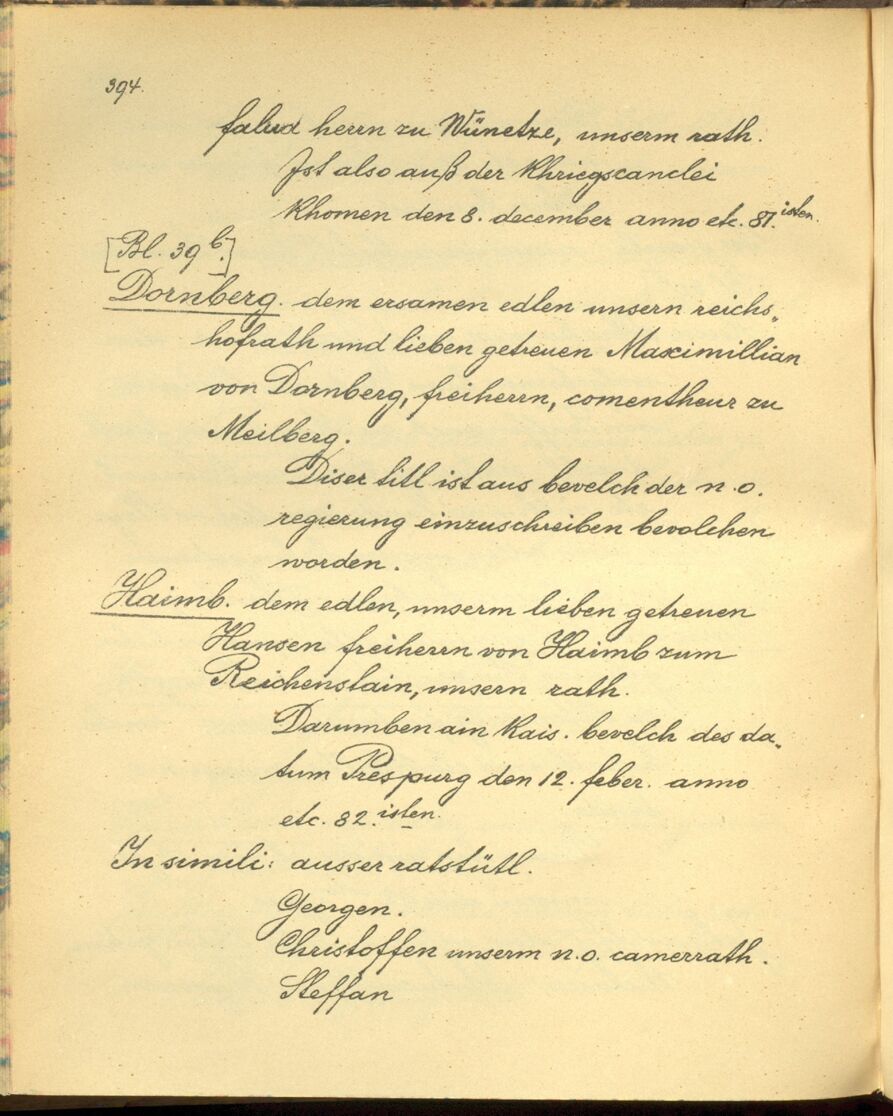 394.
falud herrn zu Wünetze, unserm rath.
Ist also auß der Khriegscanclei
Khomen den 8. december anno etc. 81.isten.
[Bl. 39b.]
Dornberg. dem ersamen edlen unsern reichs„
hofrath und lieben getreuen Maximillian
von Dornberg, freiherrn, comentheur zu
Meilberg.
Diser titl ist aus bevelch der n. o.
regierung einzuschreiben bevolchen
worden.
Haimb. dem edlen, unserm lieben getreuen
Hansen freiherrn von Haimb zum
Reichenstain, unsern rath.
Darumben ain Kais. bevelch des da„
tum Prespurg den 12. feber. anno
etc. 82.isten.
In simili: ausser ratstütl.
Georgen.
Christoffen unserm n. o. camerrath.
Steffan